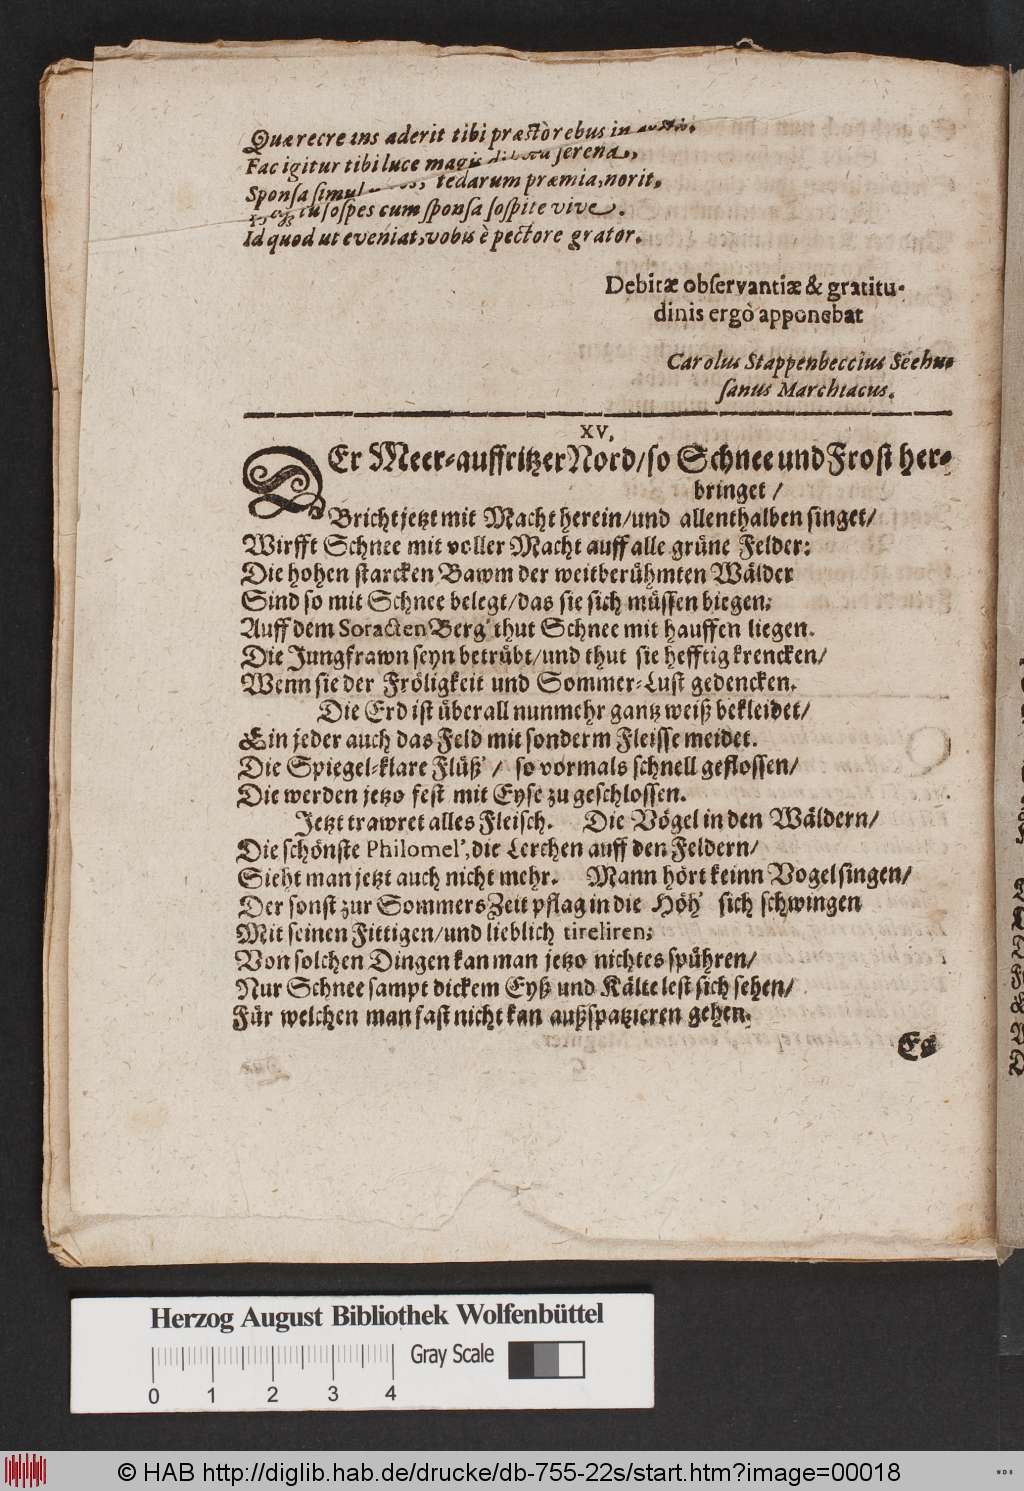 Quæ recreans aderit tibi præstò rebus in
Fac igitur tibi luce serena,
Sponsa simul tedarum præmia, norit.
tu sospes cum sponsa sospite vive.
Id quod ut eveniat, vobis è pectore grator.
Debitæ observantiæ & gratitu-
dinis ergò apponebat
Carolus Stappenbeccius Seehu-
sanus Marchiacus.
XV.
DEr Meer-auffritzer Nord/ so Schnee und Frost her-
bringet /
Bricht jetzt mit Macht herein/ und allenthalben singet/
Wirfft Schnee mit voller Macht auff alle grüne Felder:
Die hohen starcken Bawm der weitberühmten Wälder
Sind so mit Schnee belegt/ das sie sich müssen biegen:
Auff dem Soracten Berg' thut Schnee mit hauffen liegen.
Die Jungfrawn seyn betrübt/ und thut sie hefftig krencken/
Wenn sie der Fröligkeit und Sommer-Lust gedencken.
Die Erd ist überall nunmehr gantz weiß bekleidet/
Ein jeder auch das Feld mit sonderm Fleisse meidet.
Die Spiegel-klare Flüß' / so vormals schnell geflossen/
Die werden jetzo fest mit Eyse zu geschlossen.
Jetzt trawret alles Fleisch. Die Vögel in den Wäldern/
Die schönste Philomel', die Lerchen auff den Feldern/
Sieht man jetzt auch nicht mehr. Mann hört keinn Vogel singen/
Der sonst zur Sommers Zeit pflag in die Höh' sich schwingen
Mit seinen Fittigen/ und lieblich tireliren;
Von solchen Dingen kan man jetzo nichtes spühren/
Nur Schnee sampt dickem Eyß und Kälte lest sich sehen/
Für welchen man fast nicht kan außspatzieren gehen.
Es
Herzog August Bibliothek Wolfenbüttel
Gray Scale
0 1 2 3 4
© HAB http://diglib.hab.de/drucke/db-755-22s/start.htm?image=00018